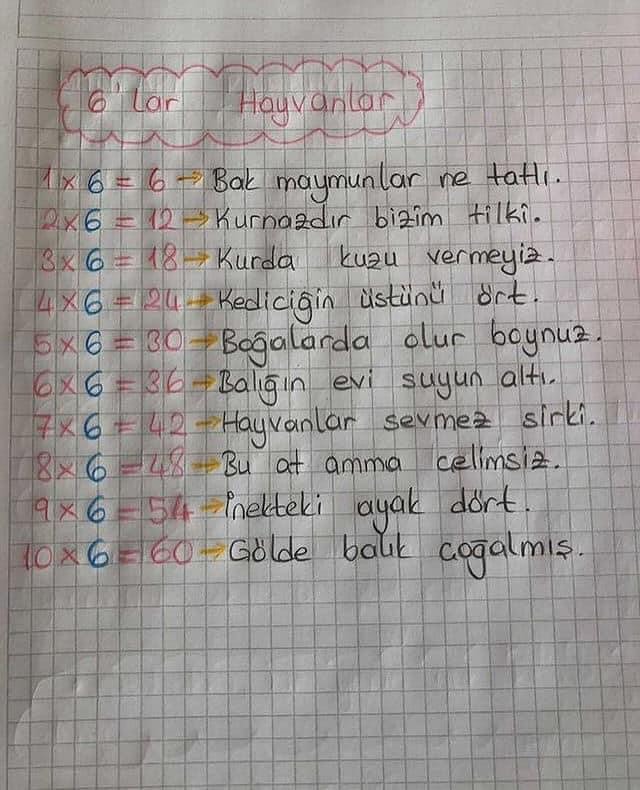 6'lar Hayvanlar
1 x 6 = 6 → Bak maymunlar ne tatlı.
2 x 6 = 12 → Kurnazdır bizim tilki.
3 x 6 = 18 → Kurda kuzu vermeyiz.
4 x 6 = 24 → Kediciğin üstünü ört.
5 x 6 = 30 → Boğalarda olur boynuz.
6 x 6 = 36 → Balığın evi suyun altı.
7 x 6 = 42 → Hayvanlar sevmez sirki.
8 x 6 = 48 → Bu at amma çelimsiz.
9 x 6 = 54 → İnekteki ayak dört.
10 x 6 = 60 → Gölde balık çoğalmış.